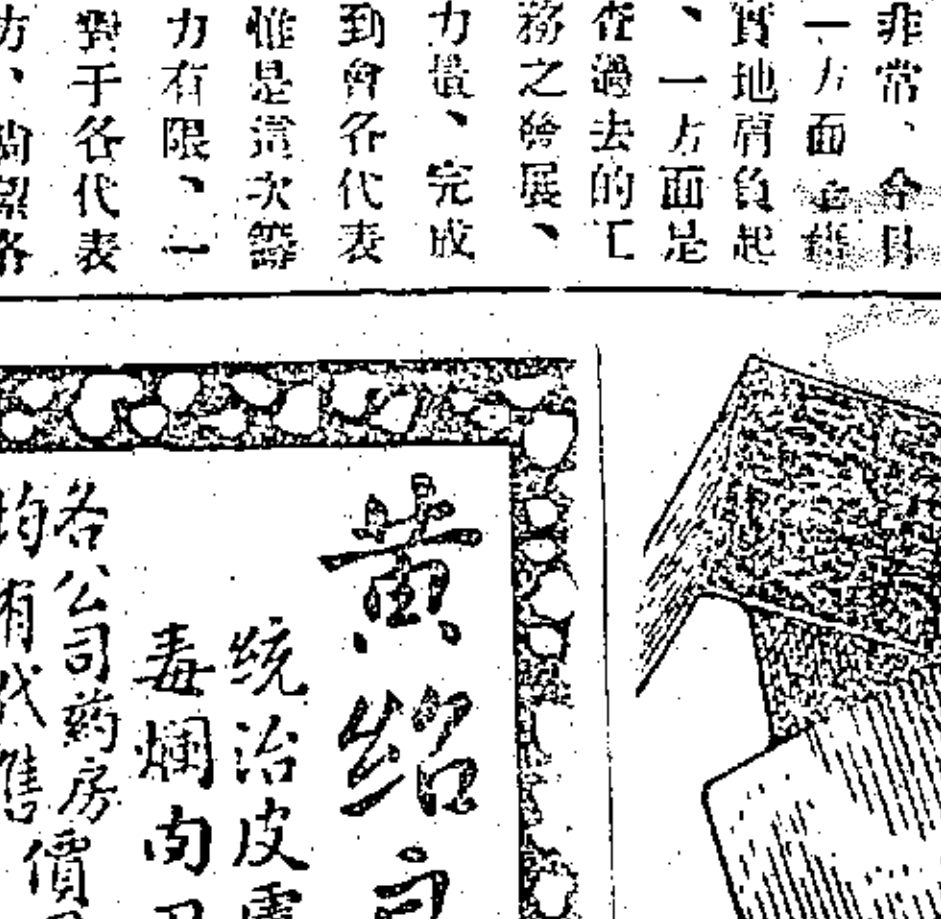 非常、今日
一方面
實地肩負起
、一方面是
查過去的工
務之發展、
力量、完成
到會各代表
惟是這次籌
力有限、一
對于各代表
黄紹
統治皮膚
毒爛肉
各公司葯房價
均有代售